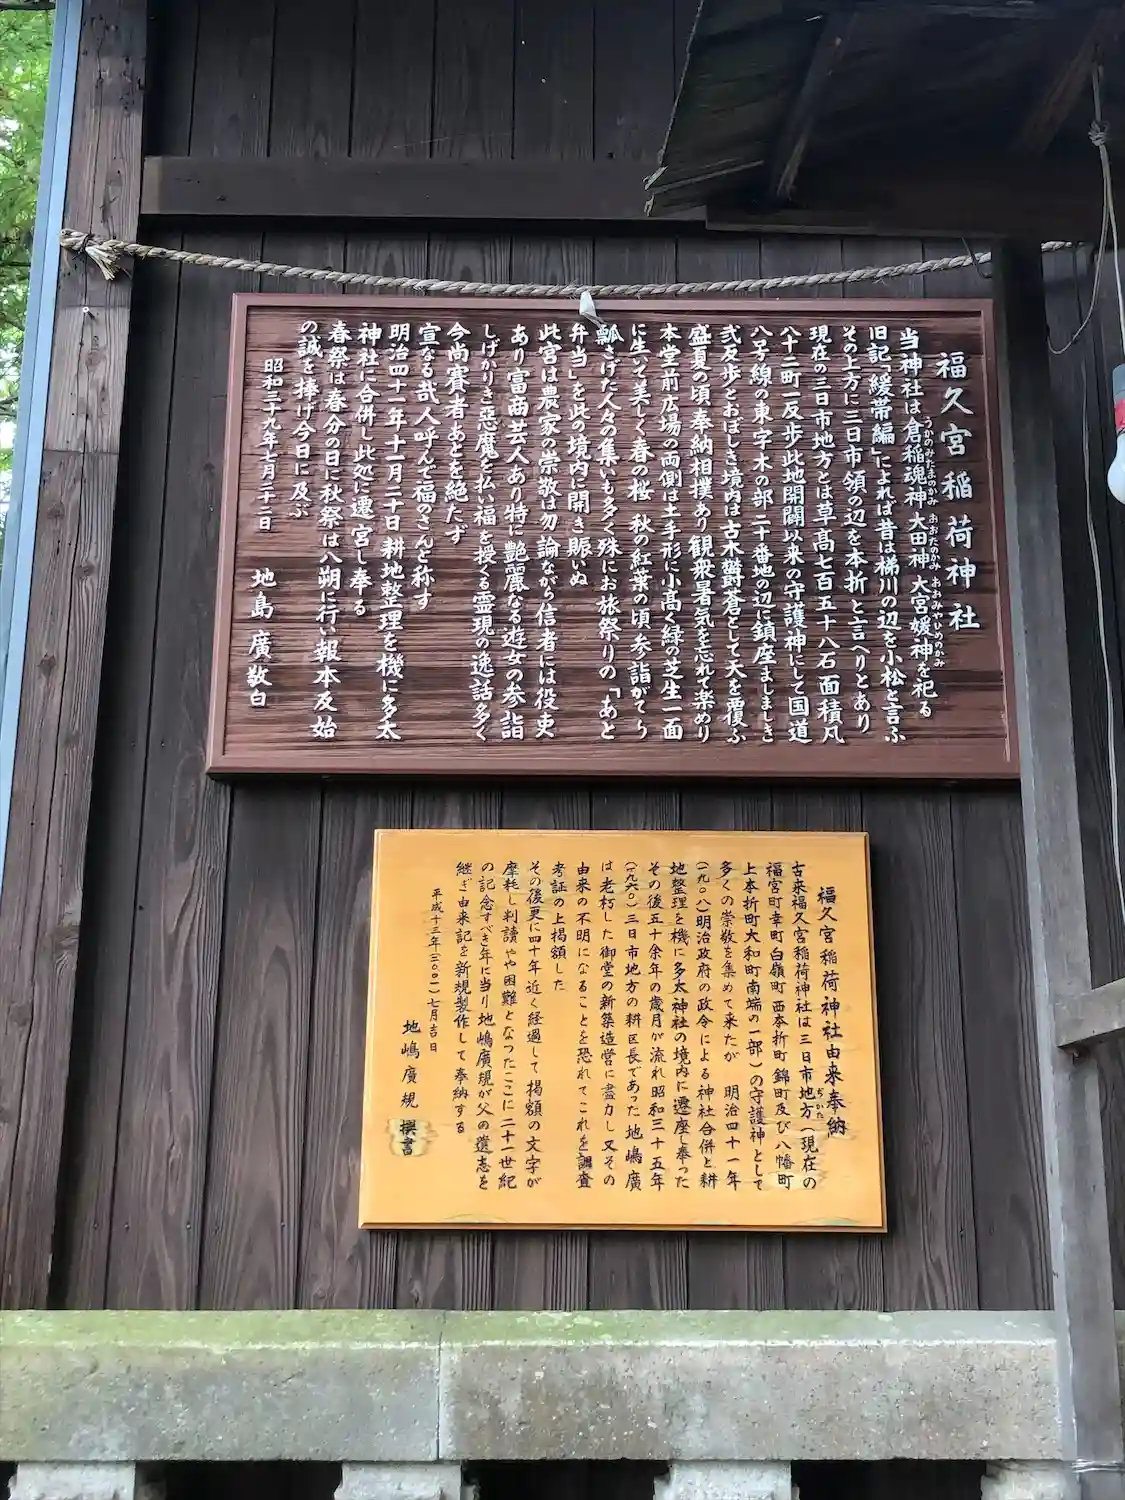 福久宮稲荷神社
当神社は倉稲魂神 大田神 大宮媛神を祀る
うかのみたまのかみ おおたのかみ おおみやひめのかみ
旧記「緩帯編」によれば昔は梯川の辺を小松と言ふ
その上方に三日市領の辺を本折と言へりとあり
現在の三日市地方とは草高七百五十八石面積凡
八十二町一反歩此地開闢以来の守護神にして国道
八号線の東字木の部二十番地の辺に鎮座ましましき
弐反歩とおぼしき境内は古木欝蒼として天を覆ふ
盛夏の頃奉納相撲あり観衆暑気を忘れて楽めり
本堂前広場の両側は土手形に小高く緑の芝生一面
に生いて美しく春の桜 秋の紅葉の頃参詣がてら
瓢さげた人々の集いも多く殊にお旅祭りの「あと
弁当」を此の境内に開き賑いぬ
此宮は農家の崇敬は勿論ながら信者には役吏
あり富商芸人あり特に艶麗なる遊女の参詣
しげかりき悪魔を払い福を授くる霊現の逸話多く
今尚賽者あとを絶たず
宣なる哉人呼んで福のさんと称す
明治四十一年十二月二十日耕地整理を機に多太
神社に合併し此処に遷宮し奉る
春祭は春分の日に秋祭は八朔に行い報本反始
の誠を捧げ今日に及ぶ
昭和三十九年七月二十二日
地島 廣敬白
福久宮稲荷神社由来奉納
古来福久宮稲荷神社は三日市地方（現在の
ぢかた
福宮町幸町白嶺町西本折町錦町及び八幡町
上本折町大和町南端の一部）の守護神として
多くの崇敬を集めて来たが 明治四十一年
（一九〇八）明治政府の政令による神社合併と耕
地整理を機に多太神社の境内に遷座し奉った
その後五十余年の歳月が流れ昭和三十五年
（一九六〇）三日市地方の耕区長であった地嶋廣
は老朽した御堂の新築造営に盡力し又その
由来の不明になることを恐れてこれを調査
考証の上掲額した
その後更に四十年近く経過して掲額の文字が
摩耗し判読やや困難となったここに二十一世紀
の記念すべき年に当り地嶋廣規が父の遺志を
継ぎ由来記を新規製作して奉納する
平成十三年（二〇〇一）七月吉日
地嶋廣規 撰書